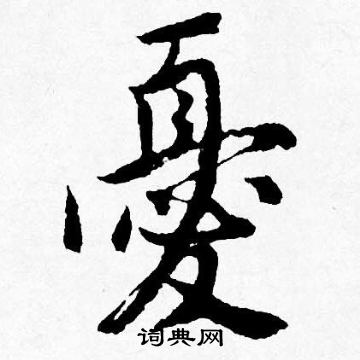 憂
词典网